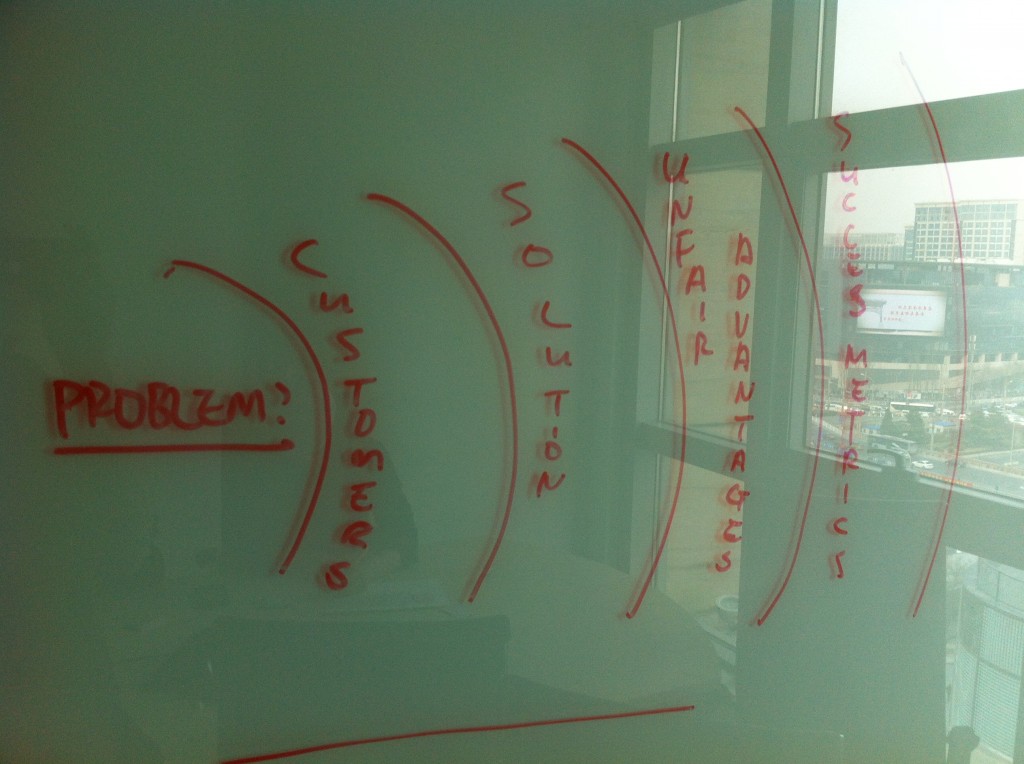 PROBLEM?
CUSTOMERS
SOLUTION
UNFAIR
ADVANTAGES
SUCCES METRICS